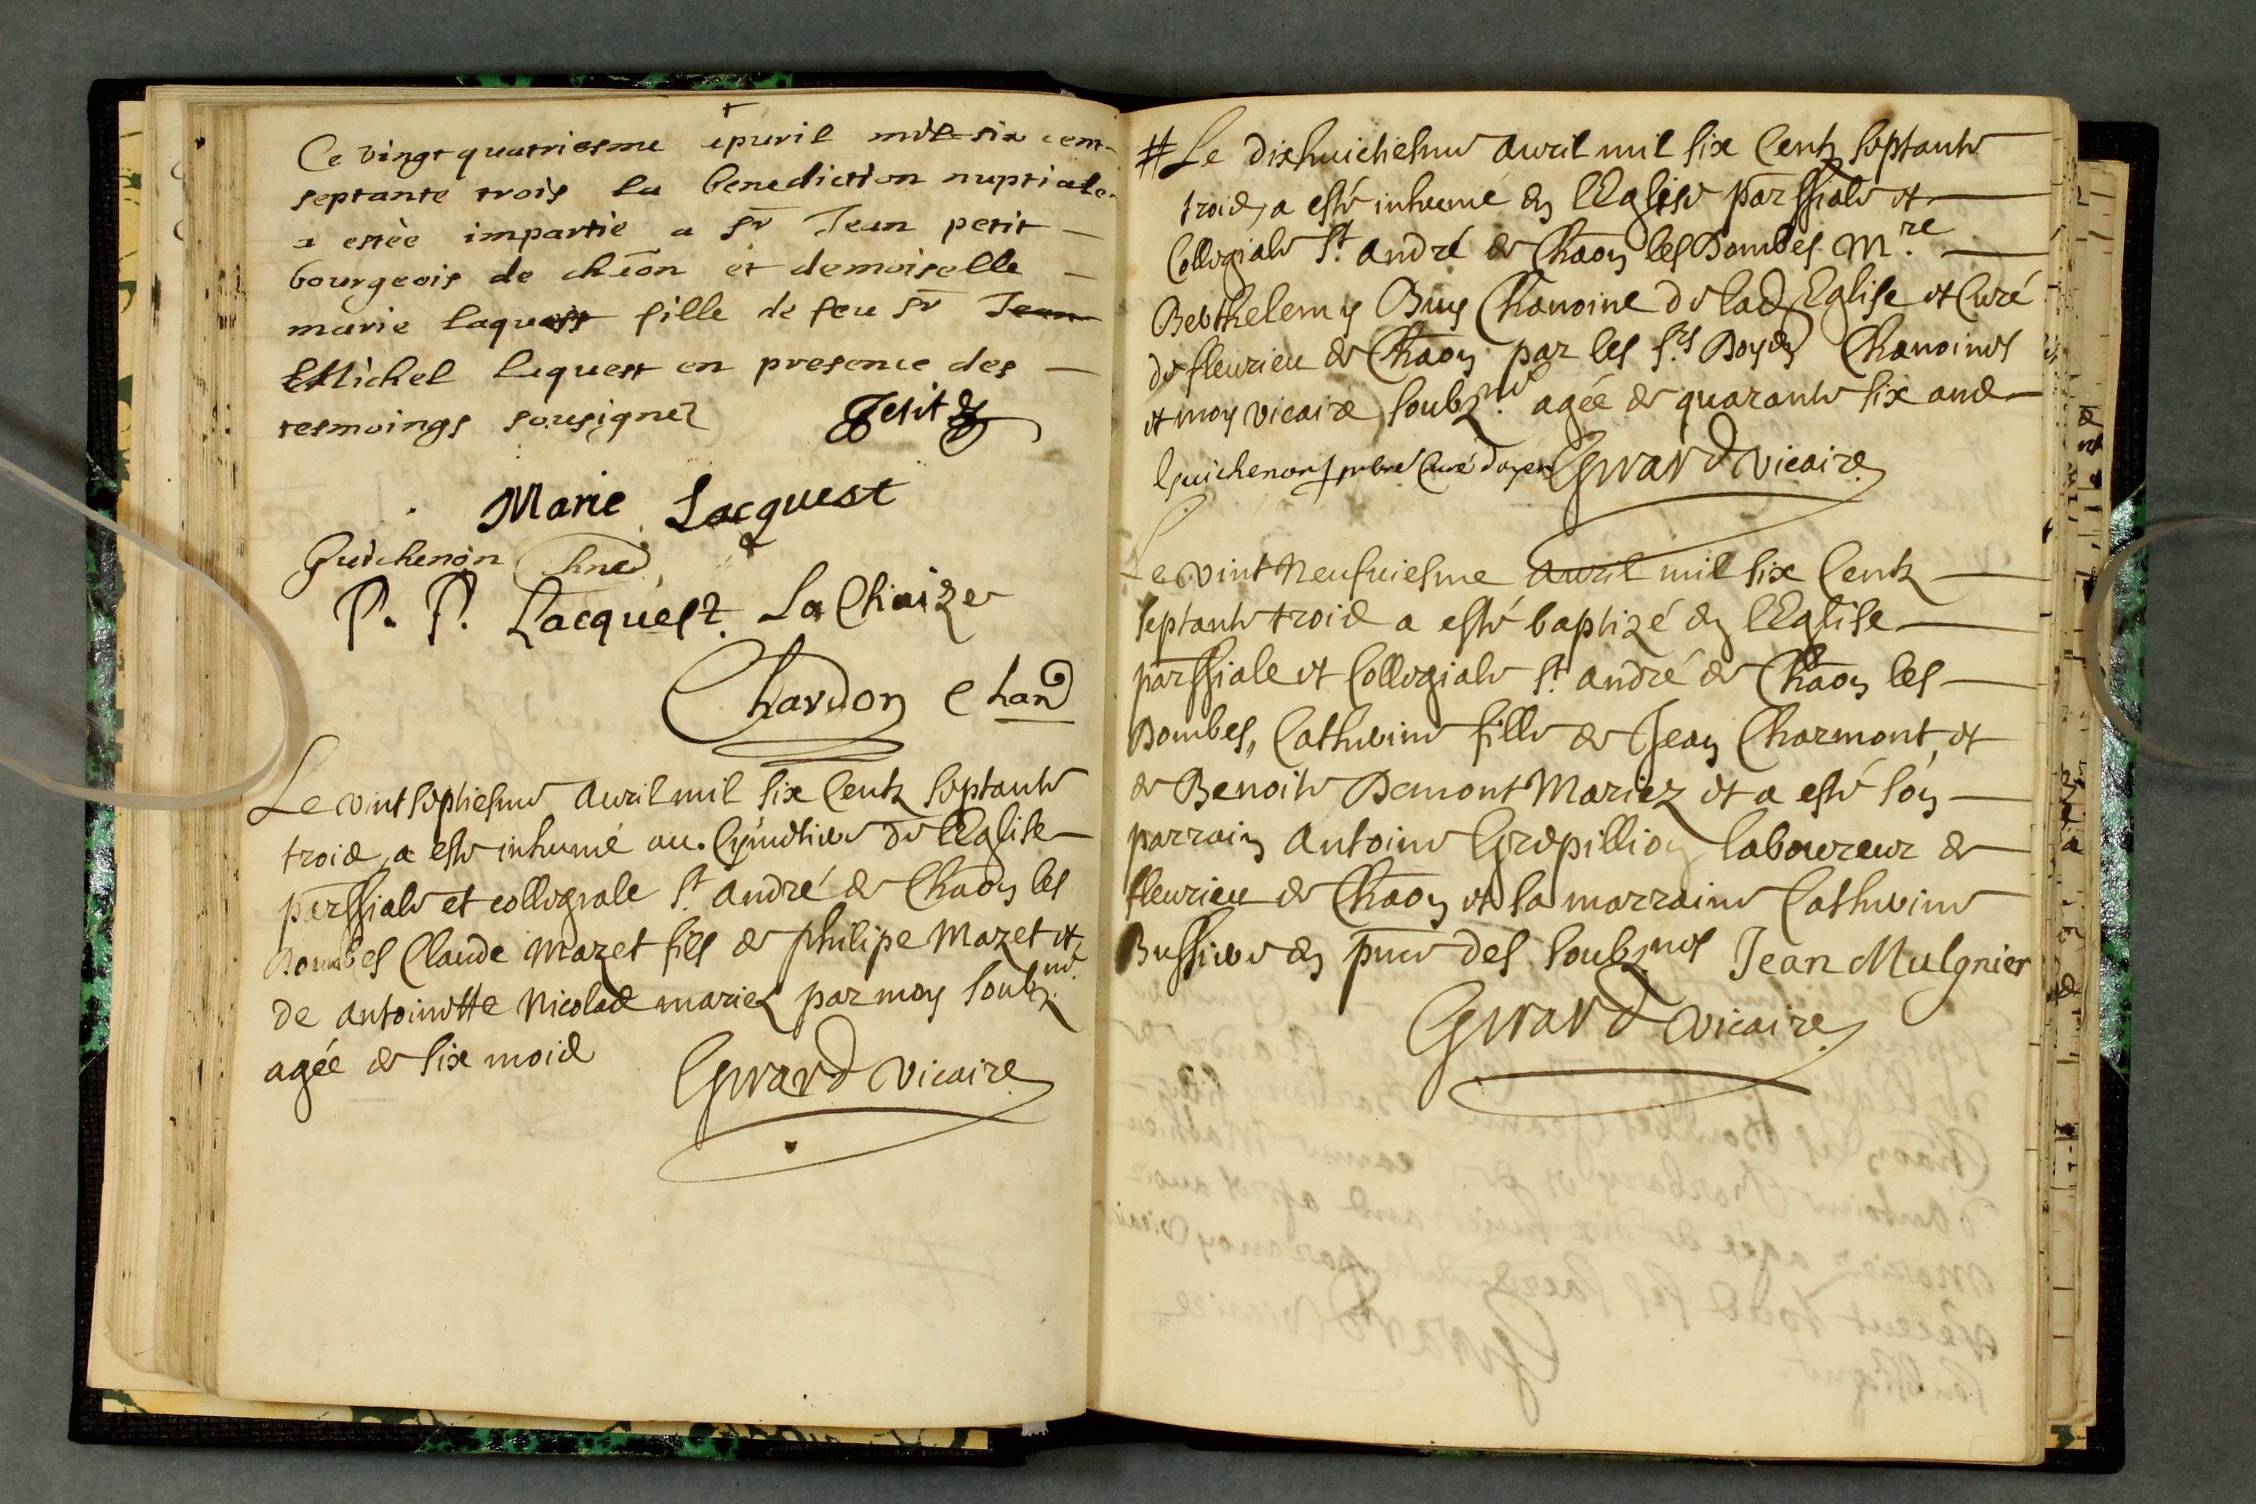 Ce vingt quatriesme apuril mil six cent
septante trois la benediction nuptiale
a estée impartie a sr Jean petit
bourgeois de chëon et demoiselle
marie laquest fille de feu sr Jean
Michel lequest en presence des
tesmoings sousignez Petit
Marie Lacquest
Guichenon
P. P. Lacquest La Chaize
Chardon Chan
Le vint septiesme auril mil six Centz septante
trois, a esté inhumé au Cymetiere de l'Eglise
parssiale et collegiale St andré de Chaon les
Dombes Claude Mazet fils de philipe Mazet et
de antoinette Nicolas mariez par moy soubz.né
agée de six mois Girard vicaire
# Le dixhuictiesme auril mil six Centz septante
trois, a esté inhumé en l'Eglise parssiale et
Collegiale St. andré de Chaon les Dombes M.re
Berthelemy Buy Chanoine de lad Eglise et Curé
de fleurieu de Chaon par les s.rs Doyen Chanoines
et moy vicaire soubz.né agée de quarante six ans
Guichenon pbre Curé doyen Girard vicaire
Le vint Neufuiesme auril mil six Centz
septante trois a esté baptizé en l'Eglise
parssiale et Collegiale St. andré de Chaon les
Dombes, Catherine fille de Jean Charmont, et
de Benoite Demont Mariez et a esté son
parrain Antoine Grepillion laboureur de
fleurieu de Chaon et la marraine Catherine
Bussiere en pnce des soubz.nes Jean Mulgnier
Girard vicaire